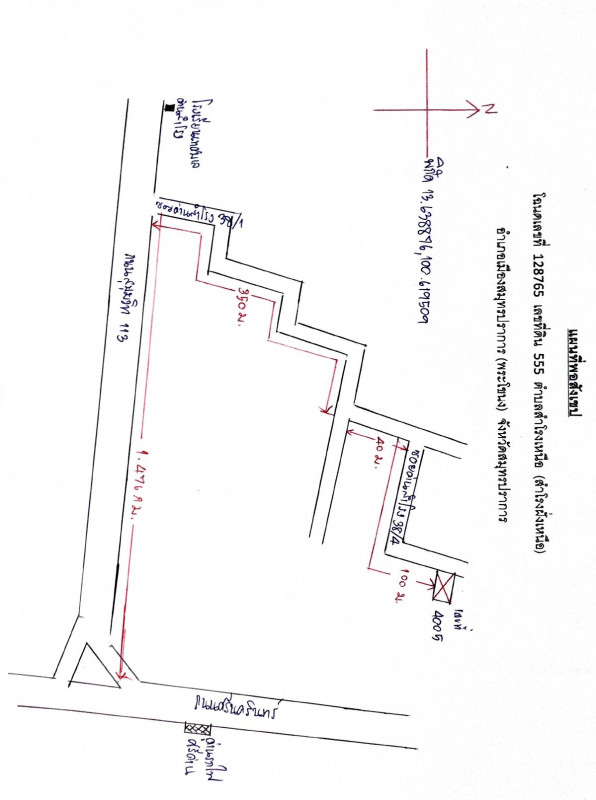 แผนที่พอสังเขป
โฉนดเลขที่ 128765 เลขที่ดิน 555 ตำบลสำโรงเหนือ (สำโรงฝั่งเหนือ)
อำเภอเมืองสมุทรปราการ (พระโขนง) จังหวัดสมุทรปราการ
N
พิกัด 13.638876,100.619509
โรงเรียนเทศบาล
ด่านสำโรง
350 ม.
ถนนสุขุมวิท 113
1.476 กม.
40 ม.
ซอยด่านสำโรง 38/4
100 ม.
เลขที่
4005
ถนนศรีนครินทร์
ศรีด่าน